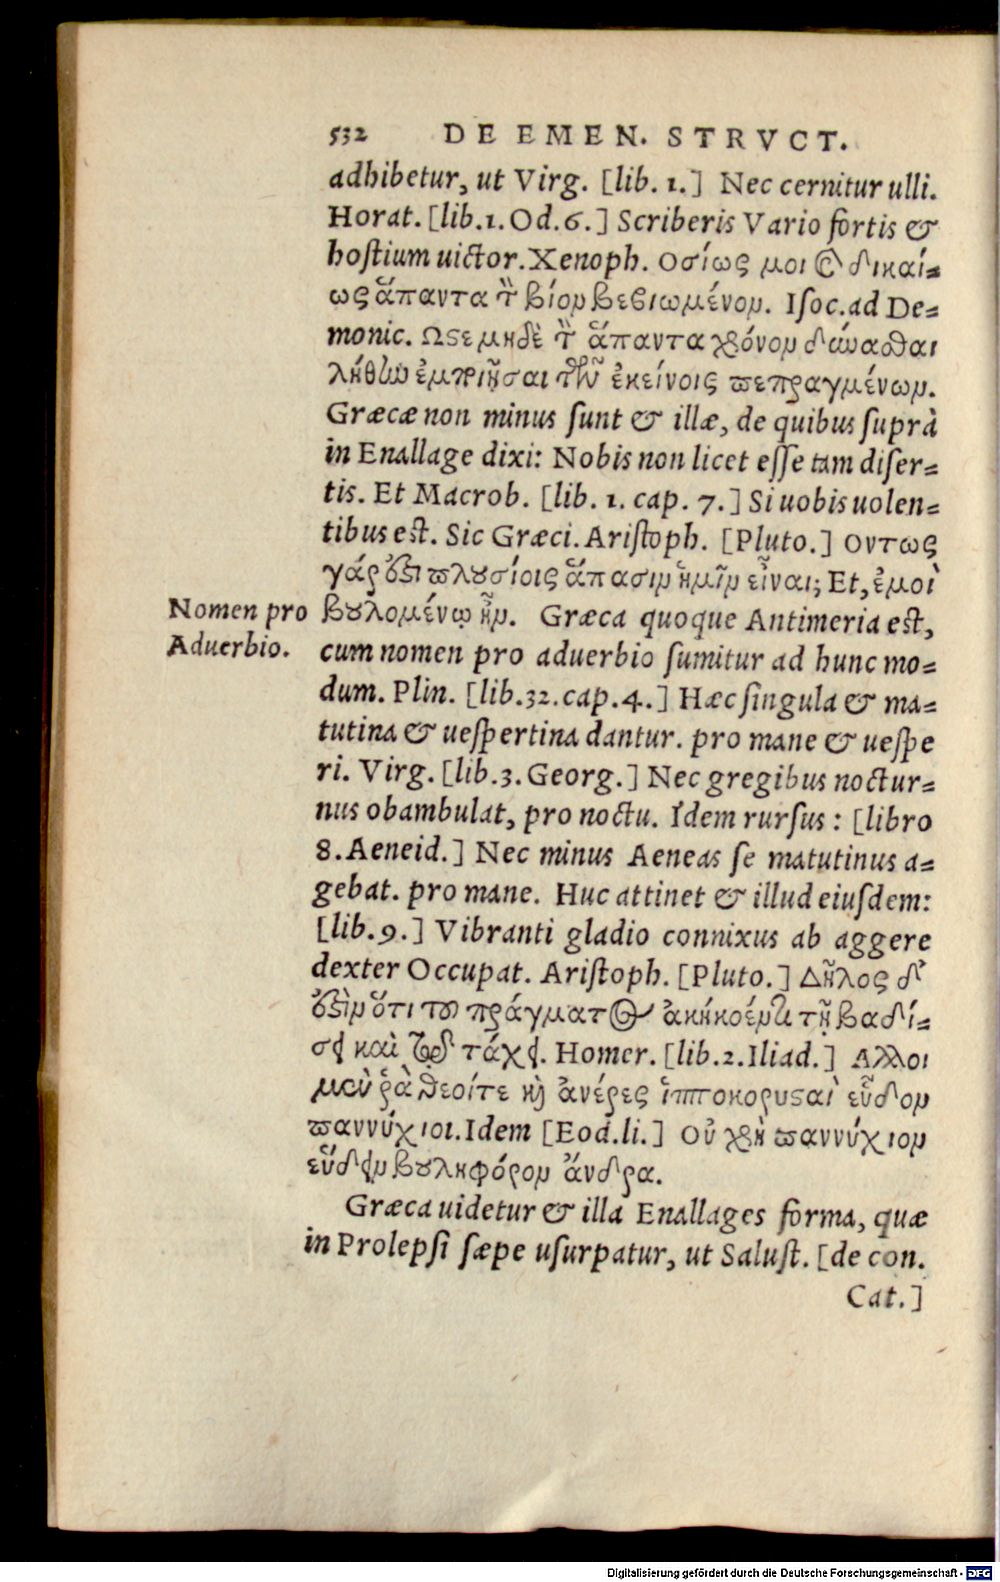 532 DE EMEN. STRVCT.
adhibetur, ut Virg. [lib. 1.] Nec cernitur ulli.
Horat. [lib.1.Od.6.] Scriberis Vario fortis &
hostium uictor. Xenoph. Οσίως μοι καὶ δικαί=
ως ἅπαντα τὸν βίον βεβιωμένον. Isoc. ad De=
monic. Ωςε μηδὲ τὸν ἅπαντα χρόνον δύνασθαι
λήθην ἐμποιῆσαι τῶν ἐκείνοις πεπραγμένων.
Græcæ non minus sunt & illæ, de quibus suprà
in Enallage dixi: Nobis non licet esse tam diser=
tis. Et Macrob. [lib. 1. cap. 7.] Si uobis uolen=
tibus est. Sic Græci. Aristoph. [Pluto.] Οντως
γάρ ἔςι πλουσίοις ἅπασιν ἡμῖν εἶναι; Et, ἐμοὶ
Nomen pro
Aduerbio.
βουλομένῳ ἦν. Græca quoque Antimeria est,
cum nomen pro aduerbio sumitur ad hunc mo=
dum. Plin. [lib.32.cap.4.] Hæc singula & ma=
tutina & uespertina dantur. pro mane & uespe
ri. Virg. [lib.3.Georg.] Nec gregibus noctur=
nus obambulat, pro noctu. Idem rursus : [libro
8.Aeneid.] Nec minus Aeneas se matutinus a=
gebat. pro mane. Huc attinet & illud eiusdem:
[lib.9.] Vibranti gladio connixus ab aggere
dexter Occupat. Aristoph. [Pluto.] Δῆλος δ'
ἐςὶν ὅτι τοῦ πράγματος ἀκηκοέν τῇ βαδί=
σει καὶ τῷ τάχει. Homer. [lib.2.Iliad.] Αλλοι
μὲν ῥὰ θεοίτε καὶ ἀνέρες ἱπποκορυςαὶ εὗδον
παννύχιοι. Idem [Eod.li.] Οὐ χρὴ παννύχιον
εὕδειν βουληφόρον ἄνδρα.
Græca uidetur & illa Enallages forma, quæ
in Prolepsi sæpe usurpatur, ut Salust. [de con.
Cat.]
Digitalisierung gefördert durch die Deutsche Forschungsgemeinschaft - DFG